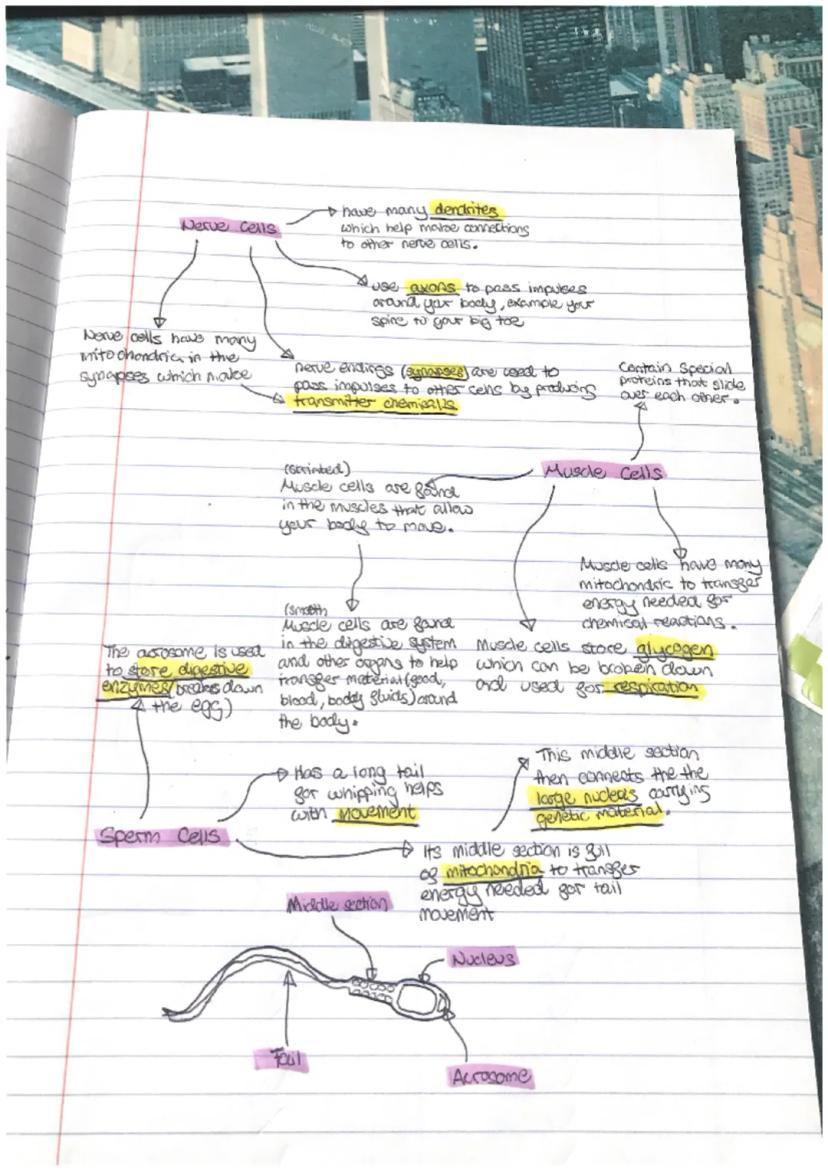 Nerve Cells
have many dendrites
which help make connections
to other nerve cells.
use axons to pass impulses
around your body, example your
spine to your big toe
Nerve cells have many
mitochondria in the
synapses which make
nerve endings (synapses) are used to
pass impulses to other cells by producing
transmitter chemicals
Contain special
proteins that slide
over each other.
Muscle Cells
(striated)
Muscle cells are found
in the muscles that allow
your body to move.
Muscle cells have many
mitochondric to transfer
energy needed for
chemical reactions.
(smooth
Muscle cells are found
in the digestive system
and other organs to help
transfer material (food,
blood, body fluids) around
the body.
Muscle cells store glycogen
which can be broken down
and used for respiration
The acrosome is used
to store digestive
enzymes (breaks down
the egg)
Sperm Cells
Has a long tail
for whipping helps
with movement
This middle section
then connects the the
large nucleus carrying
genetic material.
Its middle section is full
of mitochondria to transfer
energy needed for tail
movement
Middle section
Nucleus
Tail
Acrosome